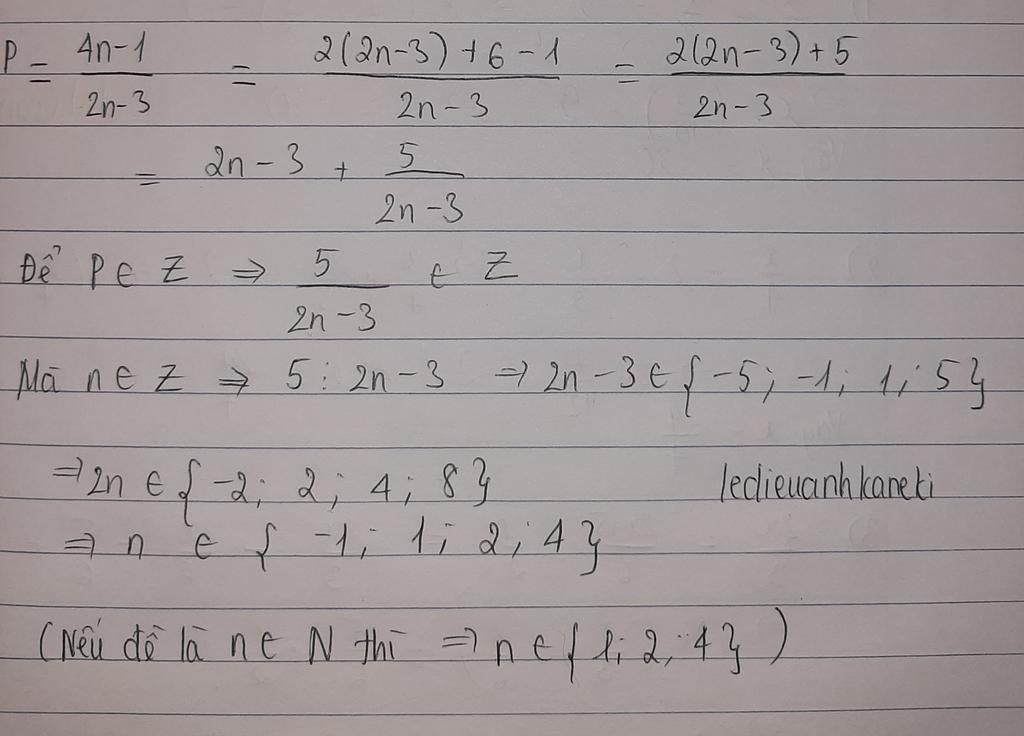 P = 4n-1 / 2n-3 = 2(2n-3)+6-1 / 2n-3 = 2(2n-3)+5 / 2n-3
= 2n-3 + 5 / 2n-3
Để P ∈ Z ⇒ 5 / 2n-3 ∈ Z
Mà n ∈ Z ⇒ 5 ⋮ 2n-3 ⇒ 2n-3 ∈ {-5; -1; 1; 5}
⇒ 2n ∈ {-2; 2; 4; 8}
ledieuanhkaneki
⇒ n ∈ {-1; 1; 2; 4}
(Nếu đề là n ∈ N thì ⇒ n ∈ {1; 2; 4})